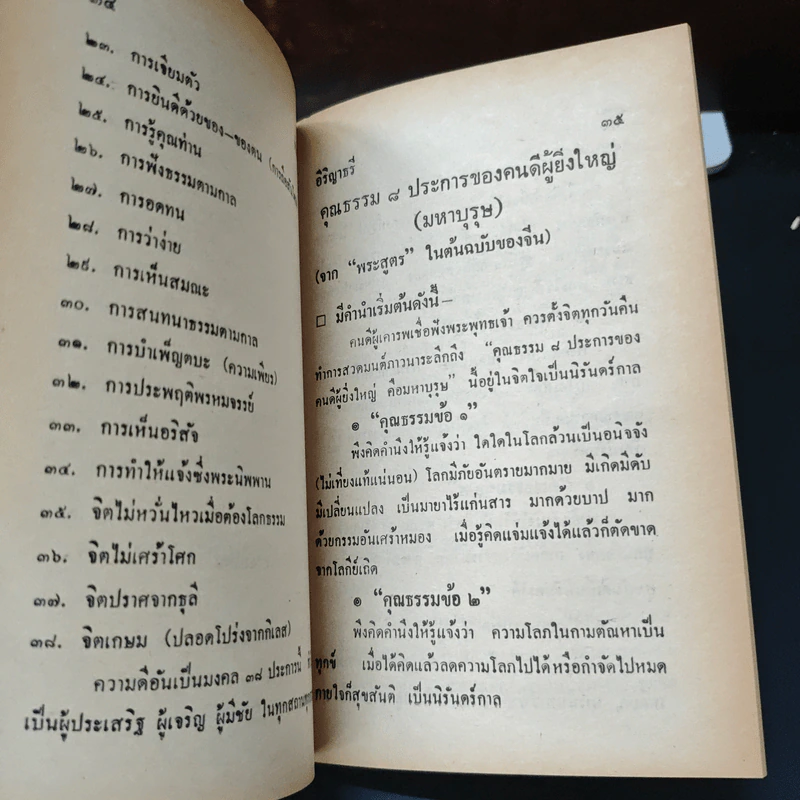 ๓๔
๒๓. การเจียมตัว
๒๔. การยินดีด้วยของ–ของตน
๒๕. การรู้คุณท่าน
๒๖. การฟังธรรมตามกาล
๒๗. การอดทน
๒๘. การว่าง่าย
๒๙. การเห็นสมณะ
๓๐. การสนทนาธรรมตามกาล
๓๑. การบำเพ็ญตบะ (ความเพียร)
๓๒. การประพฤติพรหมจรรย์
๓๓. การเห็นอริสัจ
๓๔. การทำให้แจ้งซึ่งพระนิพพาน
๓๕. จิตไม่หวั่นไหวเมื่อต้องโลกธรรม
๓๖. จิตไม่เศร้าโศก
๓๗. จิตปราศจากธุลี
๓๘. จิตเกษม (ปลอดโปร่งจากกิเลส)
ความดีอันเป็นมงคล ๓๘ ประการนี้
เป็นผู้ประเสริฐ ผู้เจริญ ผู้มีชัย ในทุกสถาน
๓๕
อิริญาธรี
คุณธรรม ๘ ประการของคนดีผู้ยิ่งใหญ่
(มหาบุรุษ)
(จาก “พระสูตร” ในต้นฉบับของจีน)
□ มีคำนำเริ่มต้นดังนี้–
คนดีผู้เคารพเชื่อฟังพระพุทธเจ้า ควรตั้งจิตทุกวันคืน
ทำการสวดมนต์ภาวนาระลึกถึง “คุณธรรม ๘ ประการของ
คนดีผู้ยิ่งใหญ่ คือมหาบุรุษ” นี้อยู่ในจิตใจเป็นนิรันดร์กาล
๑ “คุณธรรมข้อ ๑”
พึงคิดคำนึงให้รู้แจ้งว่า ใดใดในโลกล้วนเป็นอนิจจัง
(ไม่เที่ยงแท้แน่นอน) โลกมีภัยอันตรายมากมาย มีเกิดมีดับ
มีเปลี่ยนแปลง เป็นมายาไร้แก่นสาร มากด้วยบาป มาก
ด้วยกรรมอันเศร้าหมอง เมื่อรู้คิดแจ่มแจ้งได้แล้วก็ตัดขาด
จากโลกีย์เถิด
๑ “คุณธรรมข้อ ๒”
พึงคิดคำนึงให้รู้แจ้งว่า ความโลภในกามตัณหาเป็น
ทุกข์ เมื่อได้คิดแล้วลดความโลภไปได้หรือกำจัดไปหมด
กายใจก็สุขสันติ เป็นนิรันดร์กาล